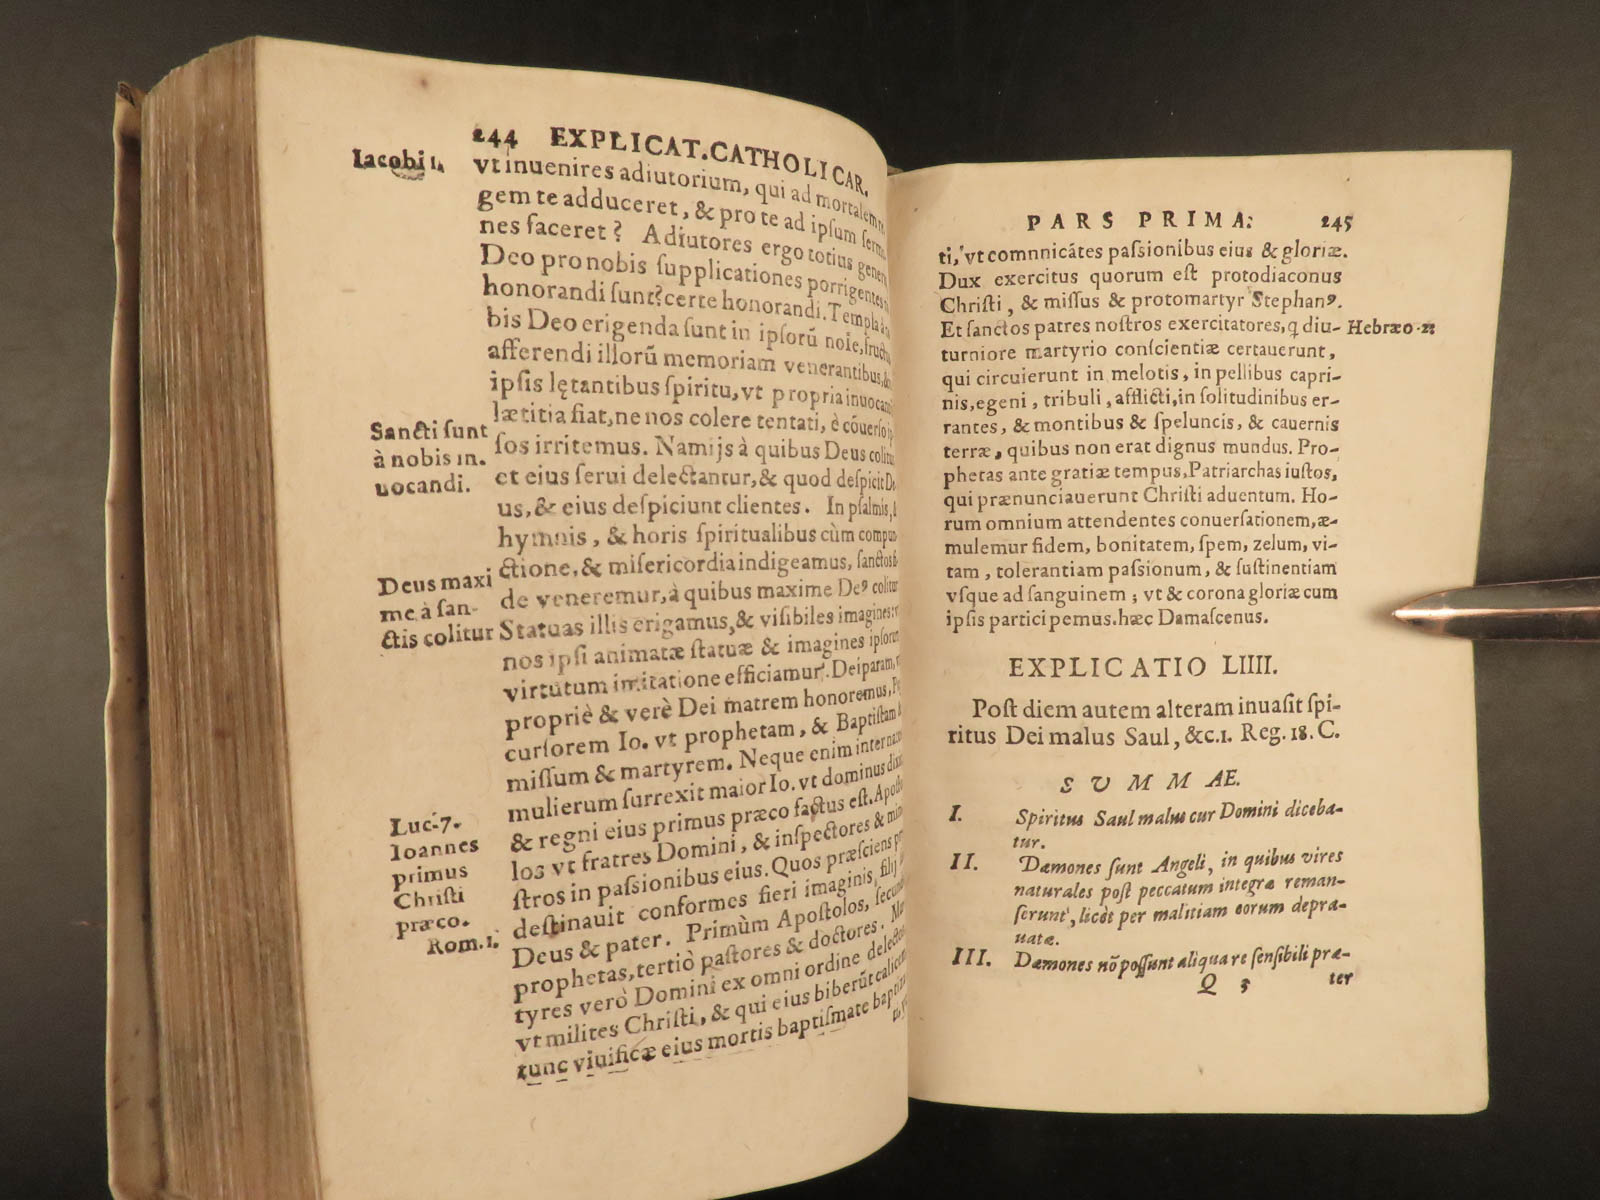 244 EXPLICAT.CATHOLICAR.
Iacobi 1.
vt inuenires adiutorium, qui ad mortalem re
gem te adduceret, & pro te ad ipſum ſermo
nes faceret? Adiutores ergo totius gener
Deo pro nobis ſupplicationes porrigentes
honorandi ſunt? certe honorandi. Templa
bis Deo erigenda ſunt in ipſorũ noĩe, fructu
afferendi illorũ memoriam venerantibus,
ipſis lętantibus ſpiritu, vt propria inuocan
lætitia fiat, ne nos colere tentati, è cõuerſo ip
Sancti ſunt
à nobis in.
uocandi.
ſos irritemus. Nam ijs à quibus Deus colitu
et eius ſerui delectantur, & quod deſpicit De
us, & eius deſpiciunt clientes. In pſalmis, &
hymnis, & horis ſpiritualibus cùm compun
ctione, & miſericordia indigeamus, ſanctos
Deus maxi
me à ſan-
ctis colitur
de veneremur, à quibus maxime Deꝰ colitur
Statuas illis erigamus, & viſibiles imagines: v
nos ipſi animatæ ſtatuæ & imagines ipſorum
virtutum imitatione efficiamur. Deiparam, v
propriè & verè Dei matrem honoremus, Pr
curſorem Io. vt prophetam, & Baptiſtam
miſſum & martyrem. Neque enim inter natos
mulierum ſurrexit maior Io. vt dominus dixi
Luc. 7.
Ioannes
primus
Chriſti
præco.
Rom. 1.
& regni eius primus præco factus eſt. Apoſto
los vt fratres Domini, & inſpectores & mini
ſtros in paſſionibus eius. Quos præſciens præ
deſtinauit conformes fieri imaginis, filij
Deus & pater. Primùm Apoſtolos, ſecundò
prophetas, tertiò paſtores & doctores. Mar
tyres verò Domini ex omni ordine delectos
vt milites Chriſti, & qui eius biberũt calicem
tunc viuificæ eius mortis baptiſmate bapti
PARS PRIMA: 245
ti, vt comnnicátes paſsionibus eius & gloriæ.
Dux exercitus quorum eſt protodiaconus
Chriſti, & miſſus & protomartyr Stephanꝰ.
Et ſanctos patres noſtros exercitatores, q diu-
Hebræo. 11
turniore martyrio conſcientiæ certauerunt,
qui circuierunt in melotis, in pellibus capri-
nis, egeni, tribuli, afflicti, in ſolitudinibus er-
rantes, & montibus & ſpeluncis, & cauernis
terræ, quibus non erat dignus mundus. Pro-
phetas ante gratiæ tempus, Patriarchas iuſtos,
qui prænunciauerunt Chriſti aduentum. Ho-
rum omnium attendentes conuerſationem, æ-
mulemur fidem, bonitatem, ſpem, zelum, vi-
tam, tolerantiam paſsionum, & ſuſtinentiam
vſque ad ſanguinem; vt & corona gloriæ cum
ipſis participemus. hæc Damaſcenus.
EXPLICATIO LIIII.
Poſt diem autem alteram inuaſit ſpi-
ritus Dei malus Saul, &c. 1. Reg. 18. C.
SVMMAE.
I. Spiritus Saul malus cur Domini diceba-
tur.
II. Dæmones ſunt Angeli, in quibus vires
naturales poſt peccatum integræ reman-
ſerunt, licèt per malitiam eorum depra-
uatæ.
III. Dæmones nõ poſſunt aliqua re ſenſibili præ-
Q 3 ter